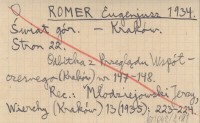 ROMER Eugenjusz 1934.
Świat gór. - Kraków.
Stron 22.
Odbitka z Przeglądu Współ-
czesnego (Kraków) nr 147-148.
Rec.: Młodziejowski Jerzy,
Wierchy (Kraków) 13 (1935): 223-224.